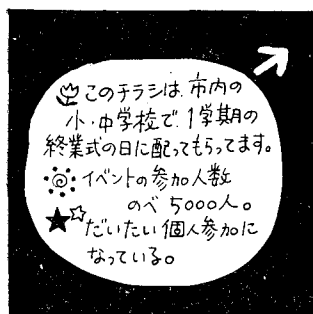 このチラシは、市内の
小・中学校で、1学期の
終業式の日に配ってもらってます。
イベントの参加人数
のべ 5000人。
だいたい個人参加に
なっている。